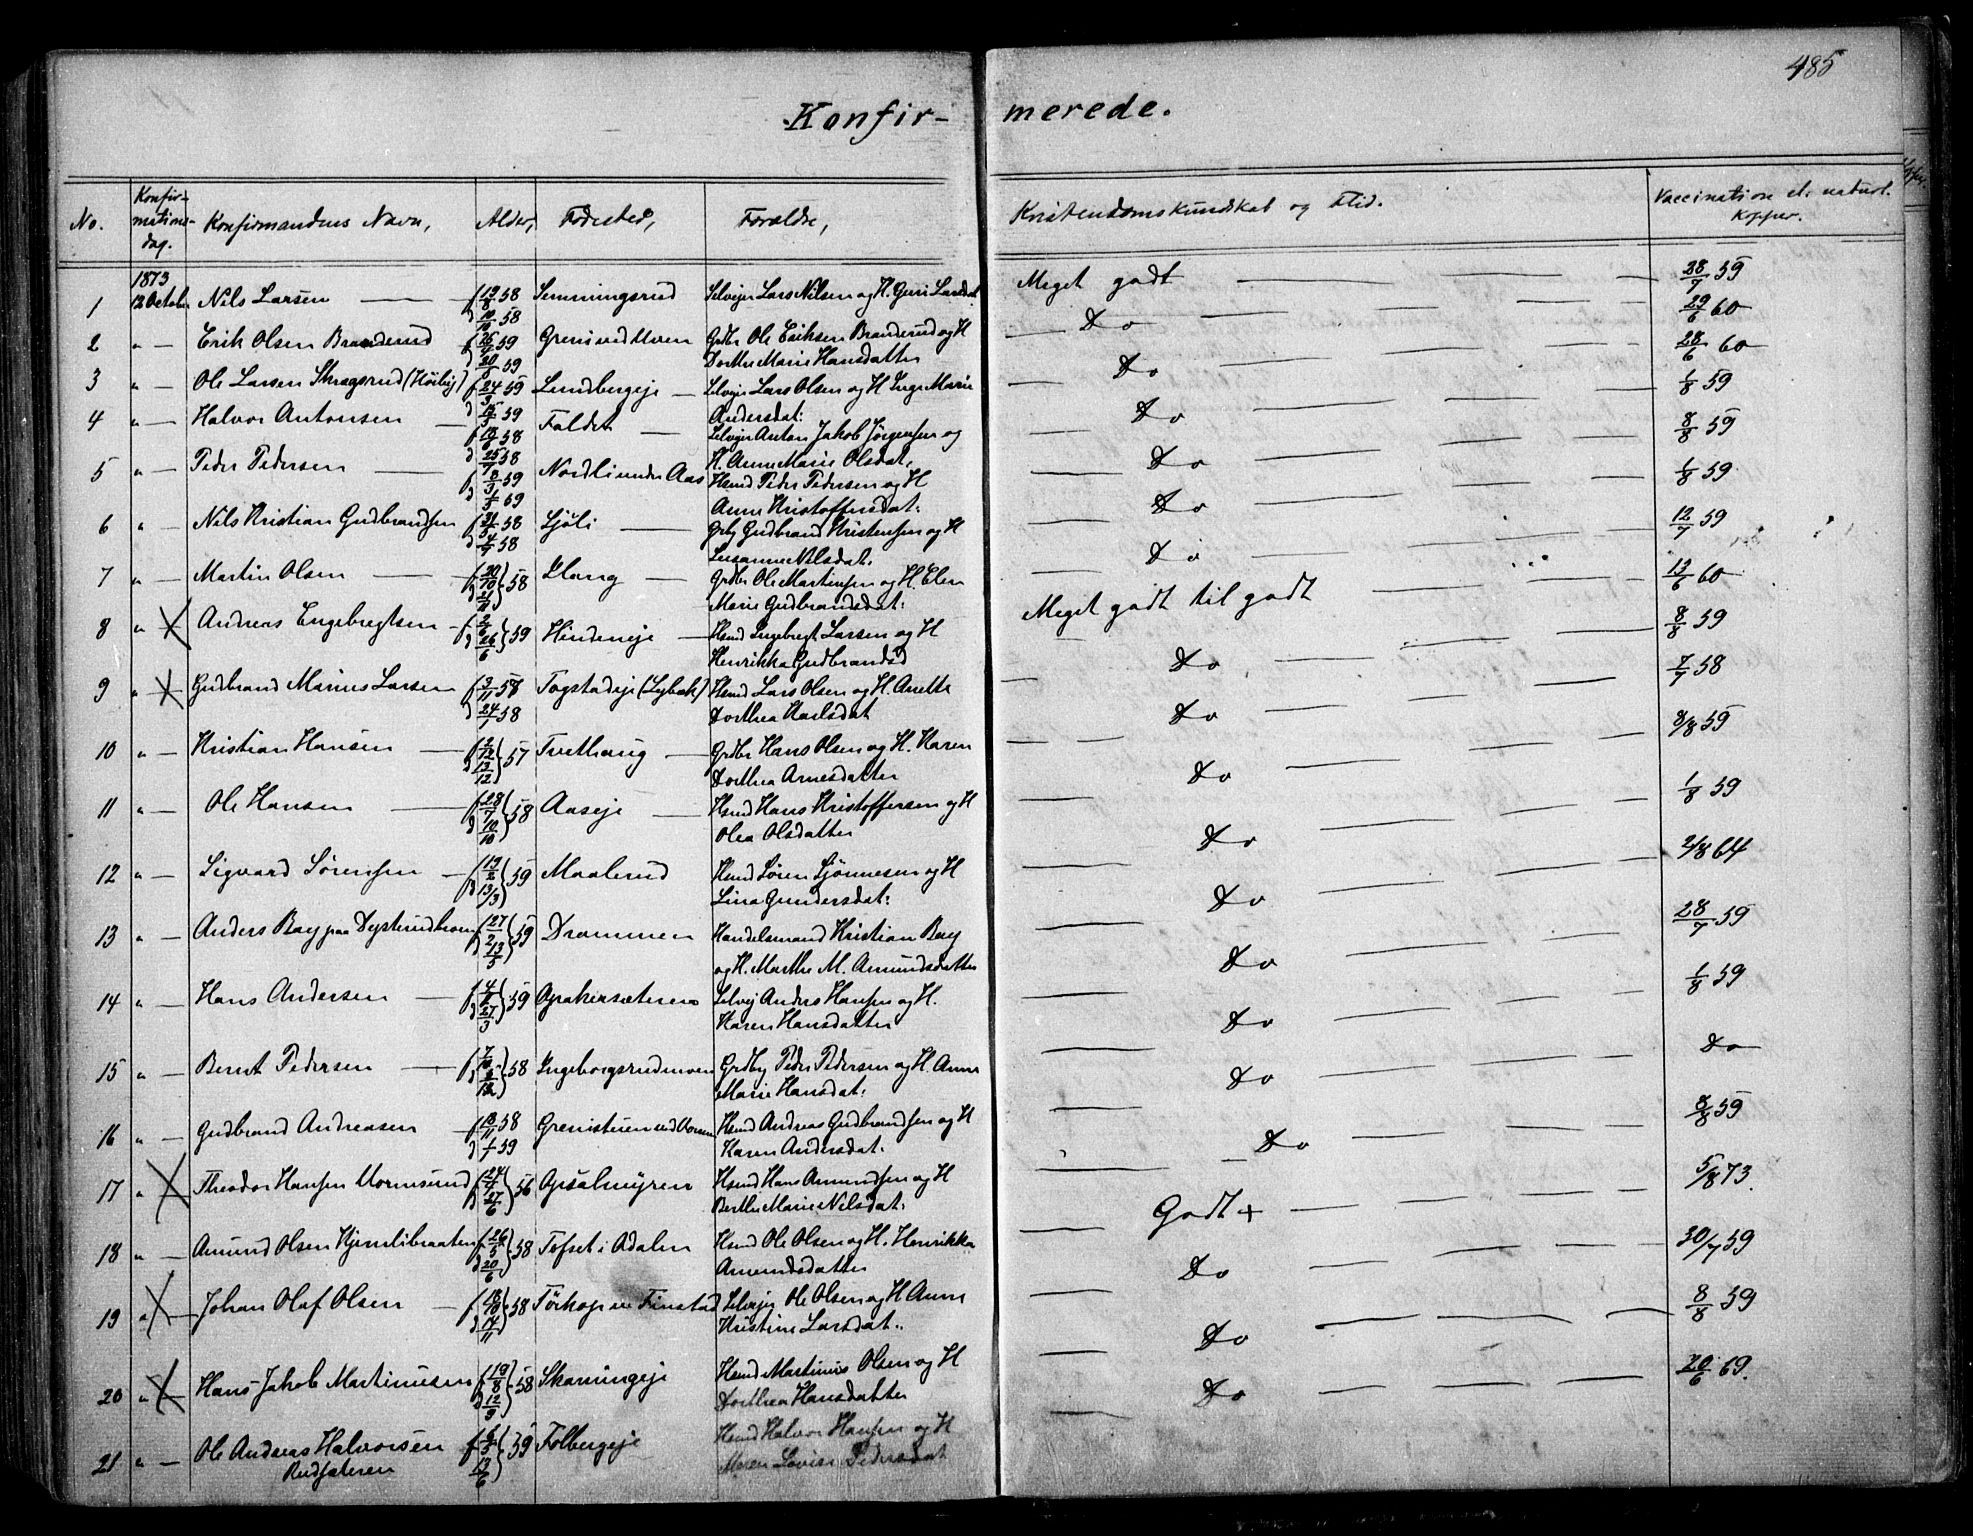 485
Konfir- merede.
No. Konfir-mations-dag. Konfirmandens Navn, Alder, Fødested, Forældre, Kristendomskundskab og Flid. Vaccination el. naturl. Kopper.
1873
1 12 Octob. Nils Larsen f 12/8 58 d 10/10 58 Semningsrud Selvejer Lars Nilsen og H. Guri Larsdat Meget godt 28/7 59
2 " Erik Olsen Branderud 59 Greni ved Moen Grdbr Ole Eriksen Branderud og H Dorthe Marie Hansdatter Do 29/6 60
3 " Ole Larsen Skragsrud (Höiby) f 24/3 59 d 59 Lundbergeje Selvejer Lars Olsen og H Inge Marie Andersdat: Do 28/6 60
4 " Halvor Antonsen f 58 d 25/7 58 Faldet Selvejer Anton Jakob Jörgensen og H. Anne Marie Olsdat. Do 1/8 59
5 " Peder Pedersen 59 59 Nordli under Aas Hsmd Peder Pedersen og H Anne Kristoffersdat: Do 8/8 59
6 " Nils Kristian Gudbrandsen 58 d 4/7 58 Sjöli Grby Gudbrand Kristensen og H Susanne Nilsdat. Do 1/8 59
7 " Martin Olsen f 20/10 58 Ilang Grdbr Ole Martinsen og H. Elen Marie Gudbrandsdat: Do 12/7 59
8 " Andreas Engebregtsen d 26/6 59 Hindeneje Hsmd Ingebregt Larsen og H Henrikka Gudbrandsd Meget godt til godt 13/6 60
9 " Gudbrand Marius Larsen f 3/11 57 d 24/1 58 Togstadeje (Lybæk) Hsmd Lars Olsen og H. Anette Dorthea Karlsdat Do 8/8 59
10 " Kristian Hansen d 13/12 57 Tvethaug Grdbr Hans Olsen og H. Karen Dorthea Arnesdatter Do 7/7 58
11 " Ole Hansen f 28/7 d 10/10 58 Aaseje Hsmd Hans Kristoffersen og H Olea Olsdatter Do 8/8 59
12 " Sigvard Sörensen f 13/2 d 13/3 59 Maalerud Hsmd Sören Sjönnesen og H Lina Gundersdat: Do 1/8 59
13 " Anders Bay paa Dysterudtom f 27/2 d 13/5 59 Drammen Handelsmand Kristian Bay og H. Marthe M. Amundsdatter Do 2/8 64
14 " Hans Andersen d 27/3 59 Apakersæteren Selvej Anders Hansen og H. Karen Hansdatter Do 28/7 59
15 " Bernt Pedersen f 7/10 58 Ingeborgsrudmoen Grdby Peder Pedersen og H. Anne Marie Hansdat: Do 1/8 59
16 " Gudbrand Andreasen 58 59 Grenistuen ved Hsmd Andreas Gudbrandsen og H Karen Andersdat. Do Do
17 " Theodor Hansen Vormsund f 24/4 d 27/6 56 Apsalmyren Hsmd Hans Amundsen og H Berthe Marie Nilsdat: Do 8/8 59
18 " Amund Olsen Kjernlibraaten f 26/5 d 20/6 58 Tofset i Adalen Hsmd Ole Olsen og H. Henrikka Amundsdatter Godt + 5/8 73.
19 " Johan Olaf Olsen f 18/10 d 14/11 58 Törkop Finstad Selvejer Ole Olsen og H Anne Kristine Larsdat. Do 30/7 59
20 " Hans Jakob Martinusen f 19/8 d 12/9 58 Skarningeje Hsmd Martinus Olsen og H Dorthea Hansdatter Do 8/8 59
21 " Ole Andreas Halvorsen Rudsæteren f 6/5 d 13/6 59 Folbergeje Hsmd Halvor Hansen og H Maren Lovise Pedersdat Do 20/6 69.